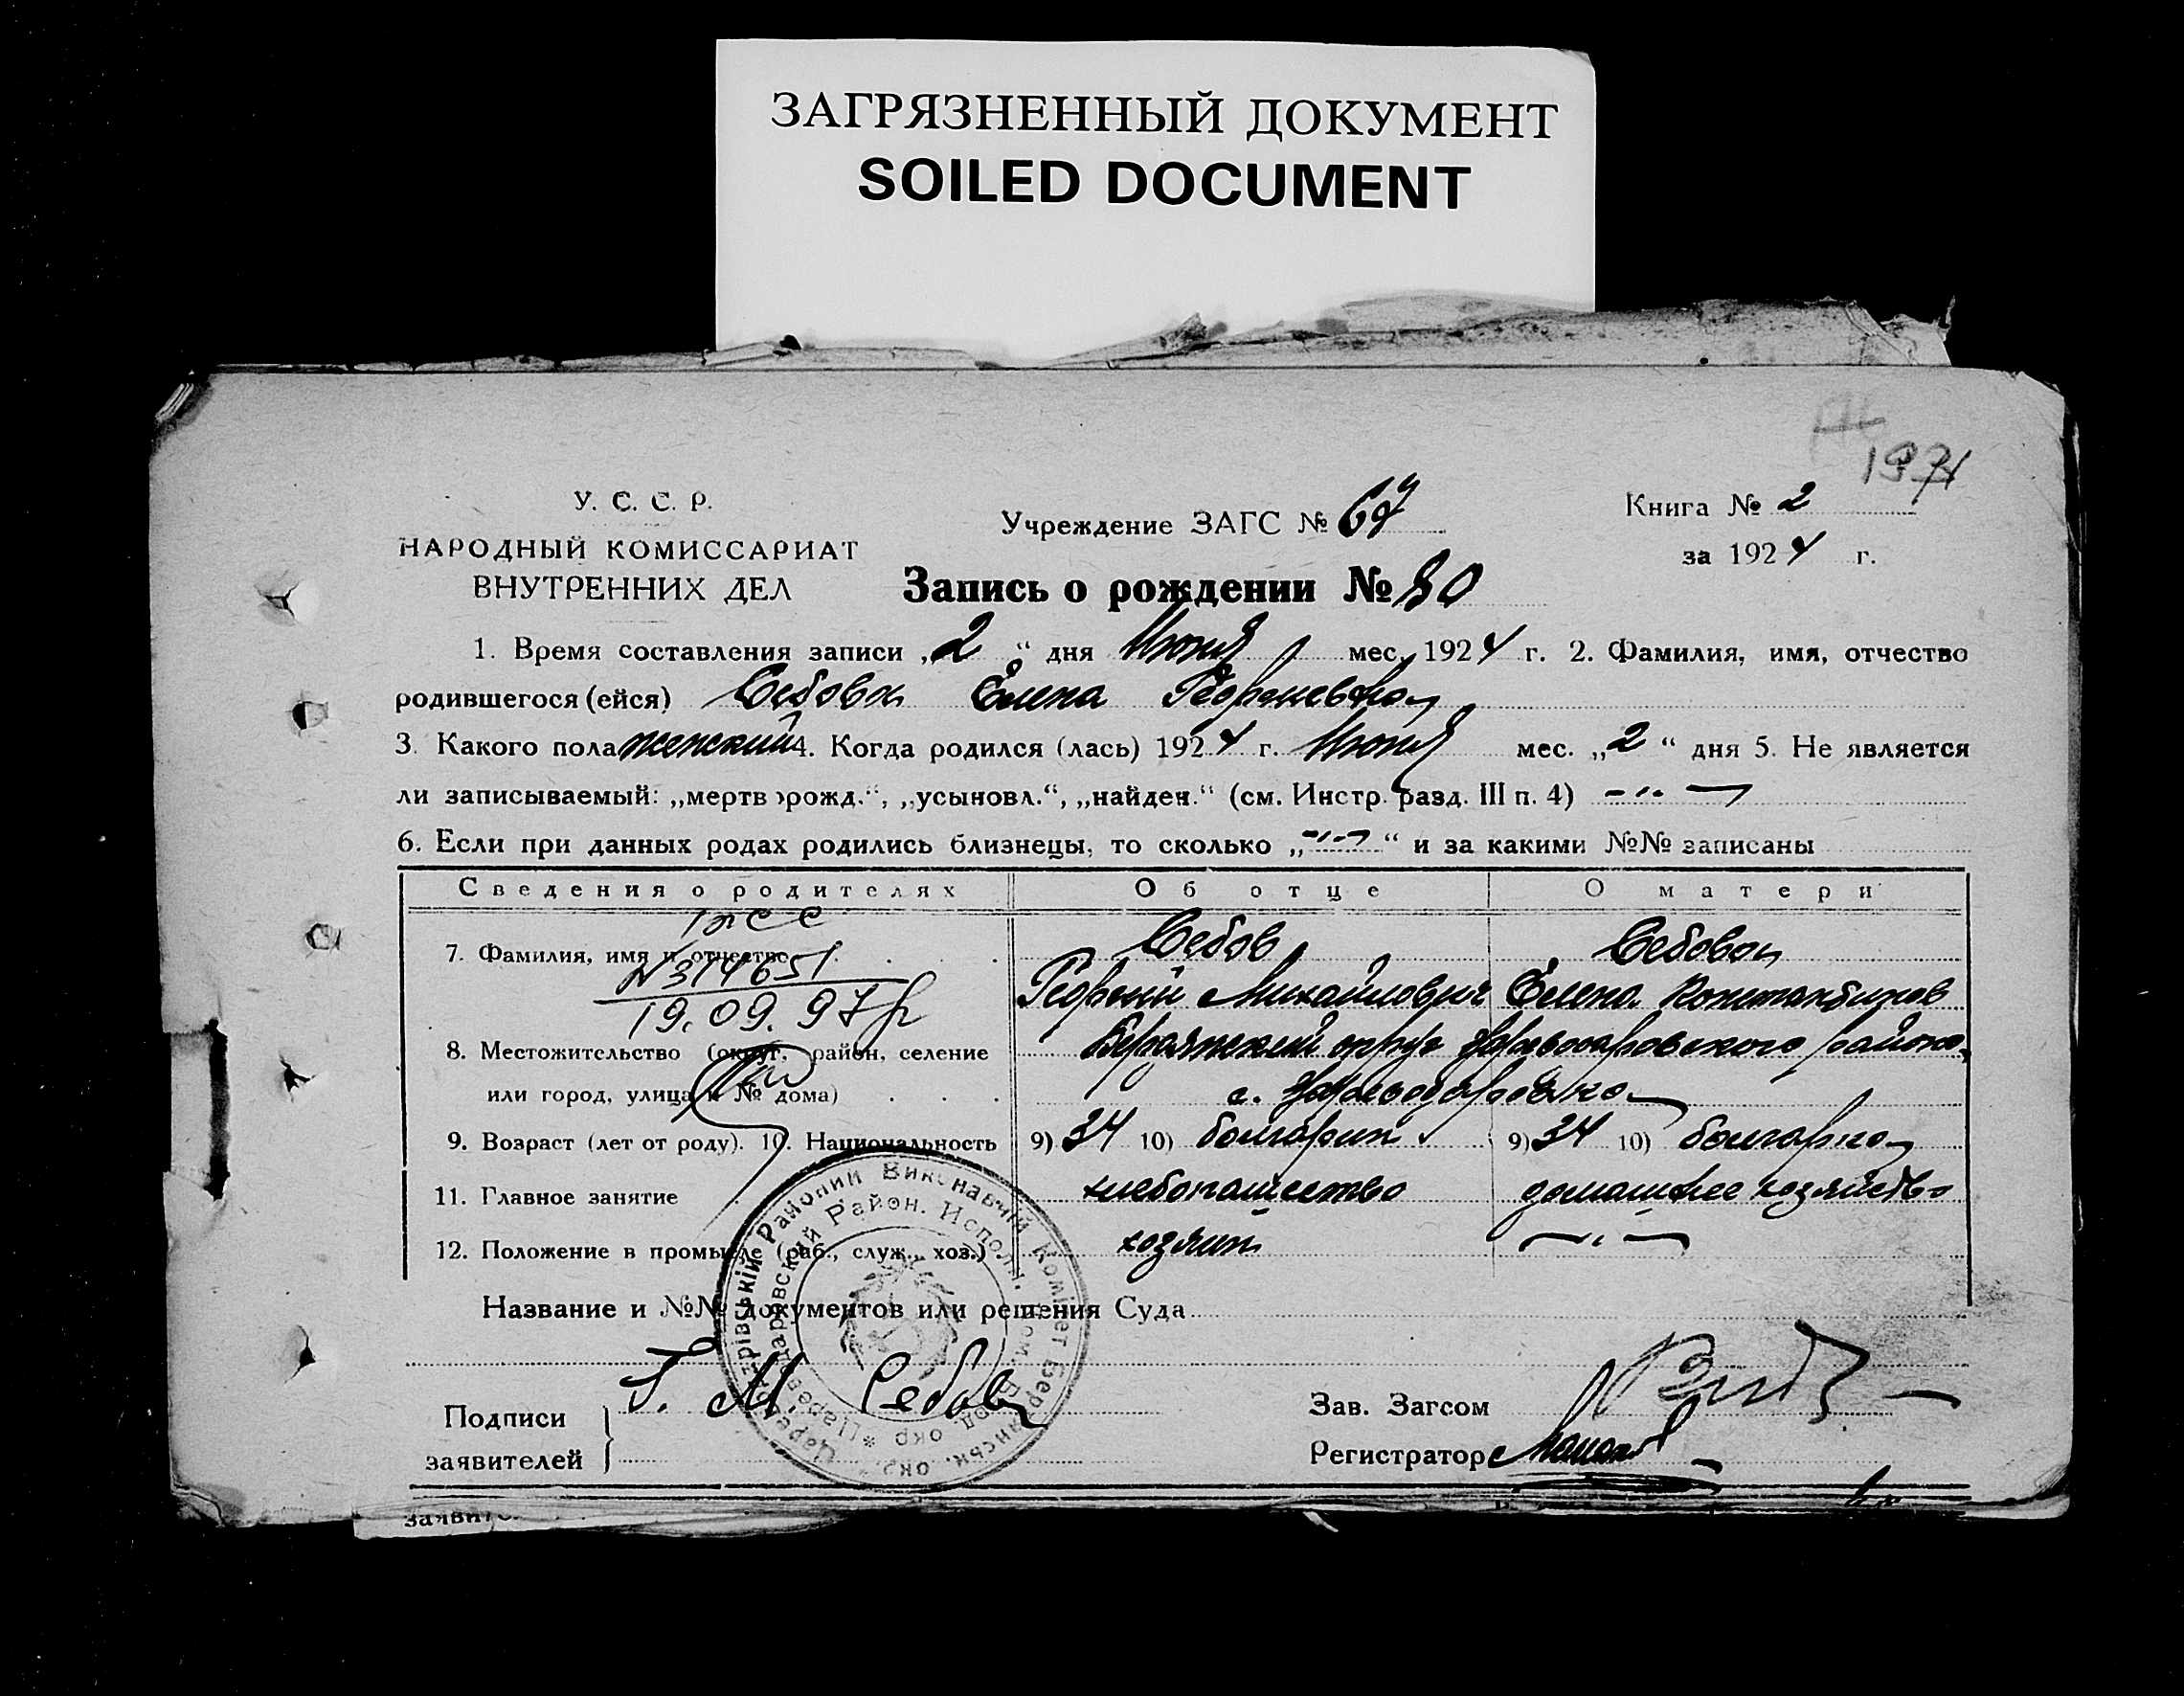 ЗАГРЯЗНЕННЫЙ ДОКУМЕНТ
SOILED DOCUMENT
197
У. С. С. Р.
НАРОДНЫЙ КОМИССАРИАТ
ВНУТРЕННИХ ДЕЛ
Учреждение ЗАГС №
Книга № 2
за 1924 г.
Запись о рождении № 80
1. Время составления записи „2“ дня Июня мес. 1924 г. 2. Фамилия, имя, отчество
родившегося (ейся) Себова Елена Георгиевна
3. Какого пола женский 4. Когда родился (лась) 1924 г. Июня мес. „2“ дня 5. Не является
ли записываемый: „мертворожд.“, „усыновл.“, „найден.“ (см. Инстр. разд. III п. 4) - „ -
6. Если при данных родах родились близнецы, то сколько „-„-“ и за какими №№ записаны
Сведения о родителях Об отце О матери
7. Фамилия, имя и отчество Себов Себова
N 314651
Георгий Михайлович Елена Константинов
19.09.97г
8. Местожительство (округ, район, селение Бердянский округ Цареводаровского района,
или город, улица и № дома) с. Цареводаровка
9. Возраст (лет от роду). 10. Национальность 9) 34 10) болгарин 9) 34 10) болгарка
11. Главное занятие хлебопашество домашнее хозяйство
12. Положение в промысле (раб., служ., хоз.) хозяин - „ -
Название и №№ документов или решения Суда
Г. М. Себов
Подписи
заявителей
Зав. Загсом
Регистратор
Виконавчий Комітет Бердянськ. окр.
Цареводаровский Район. Исполн. Ком. Бердян. окр.
заявите